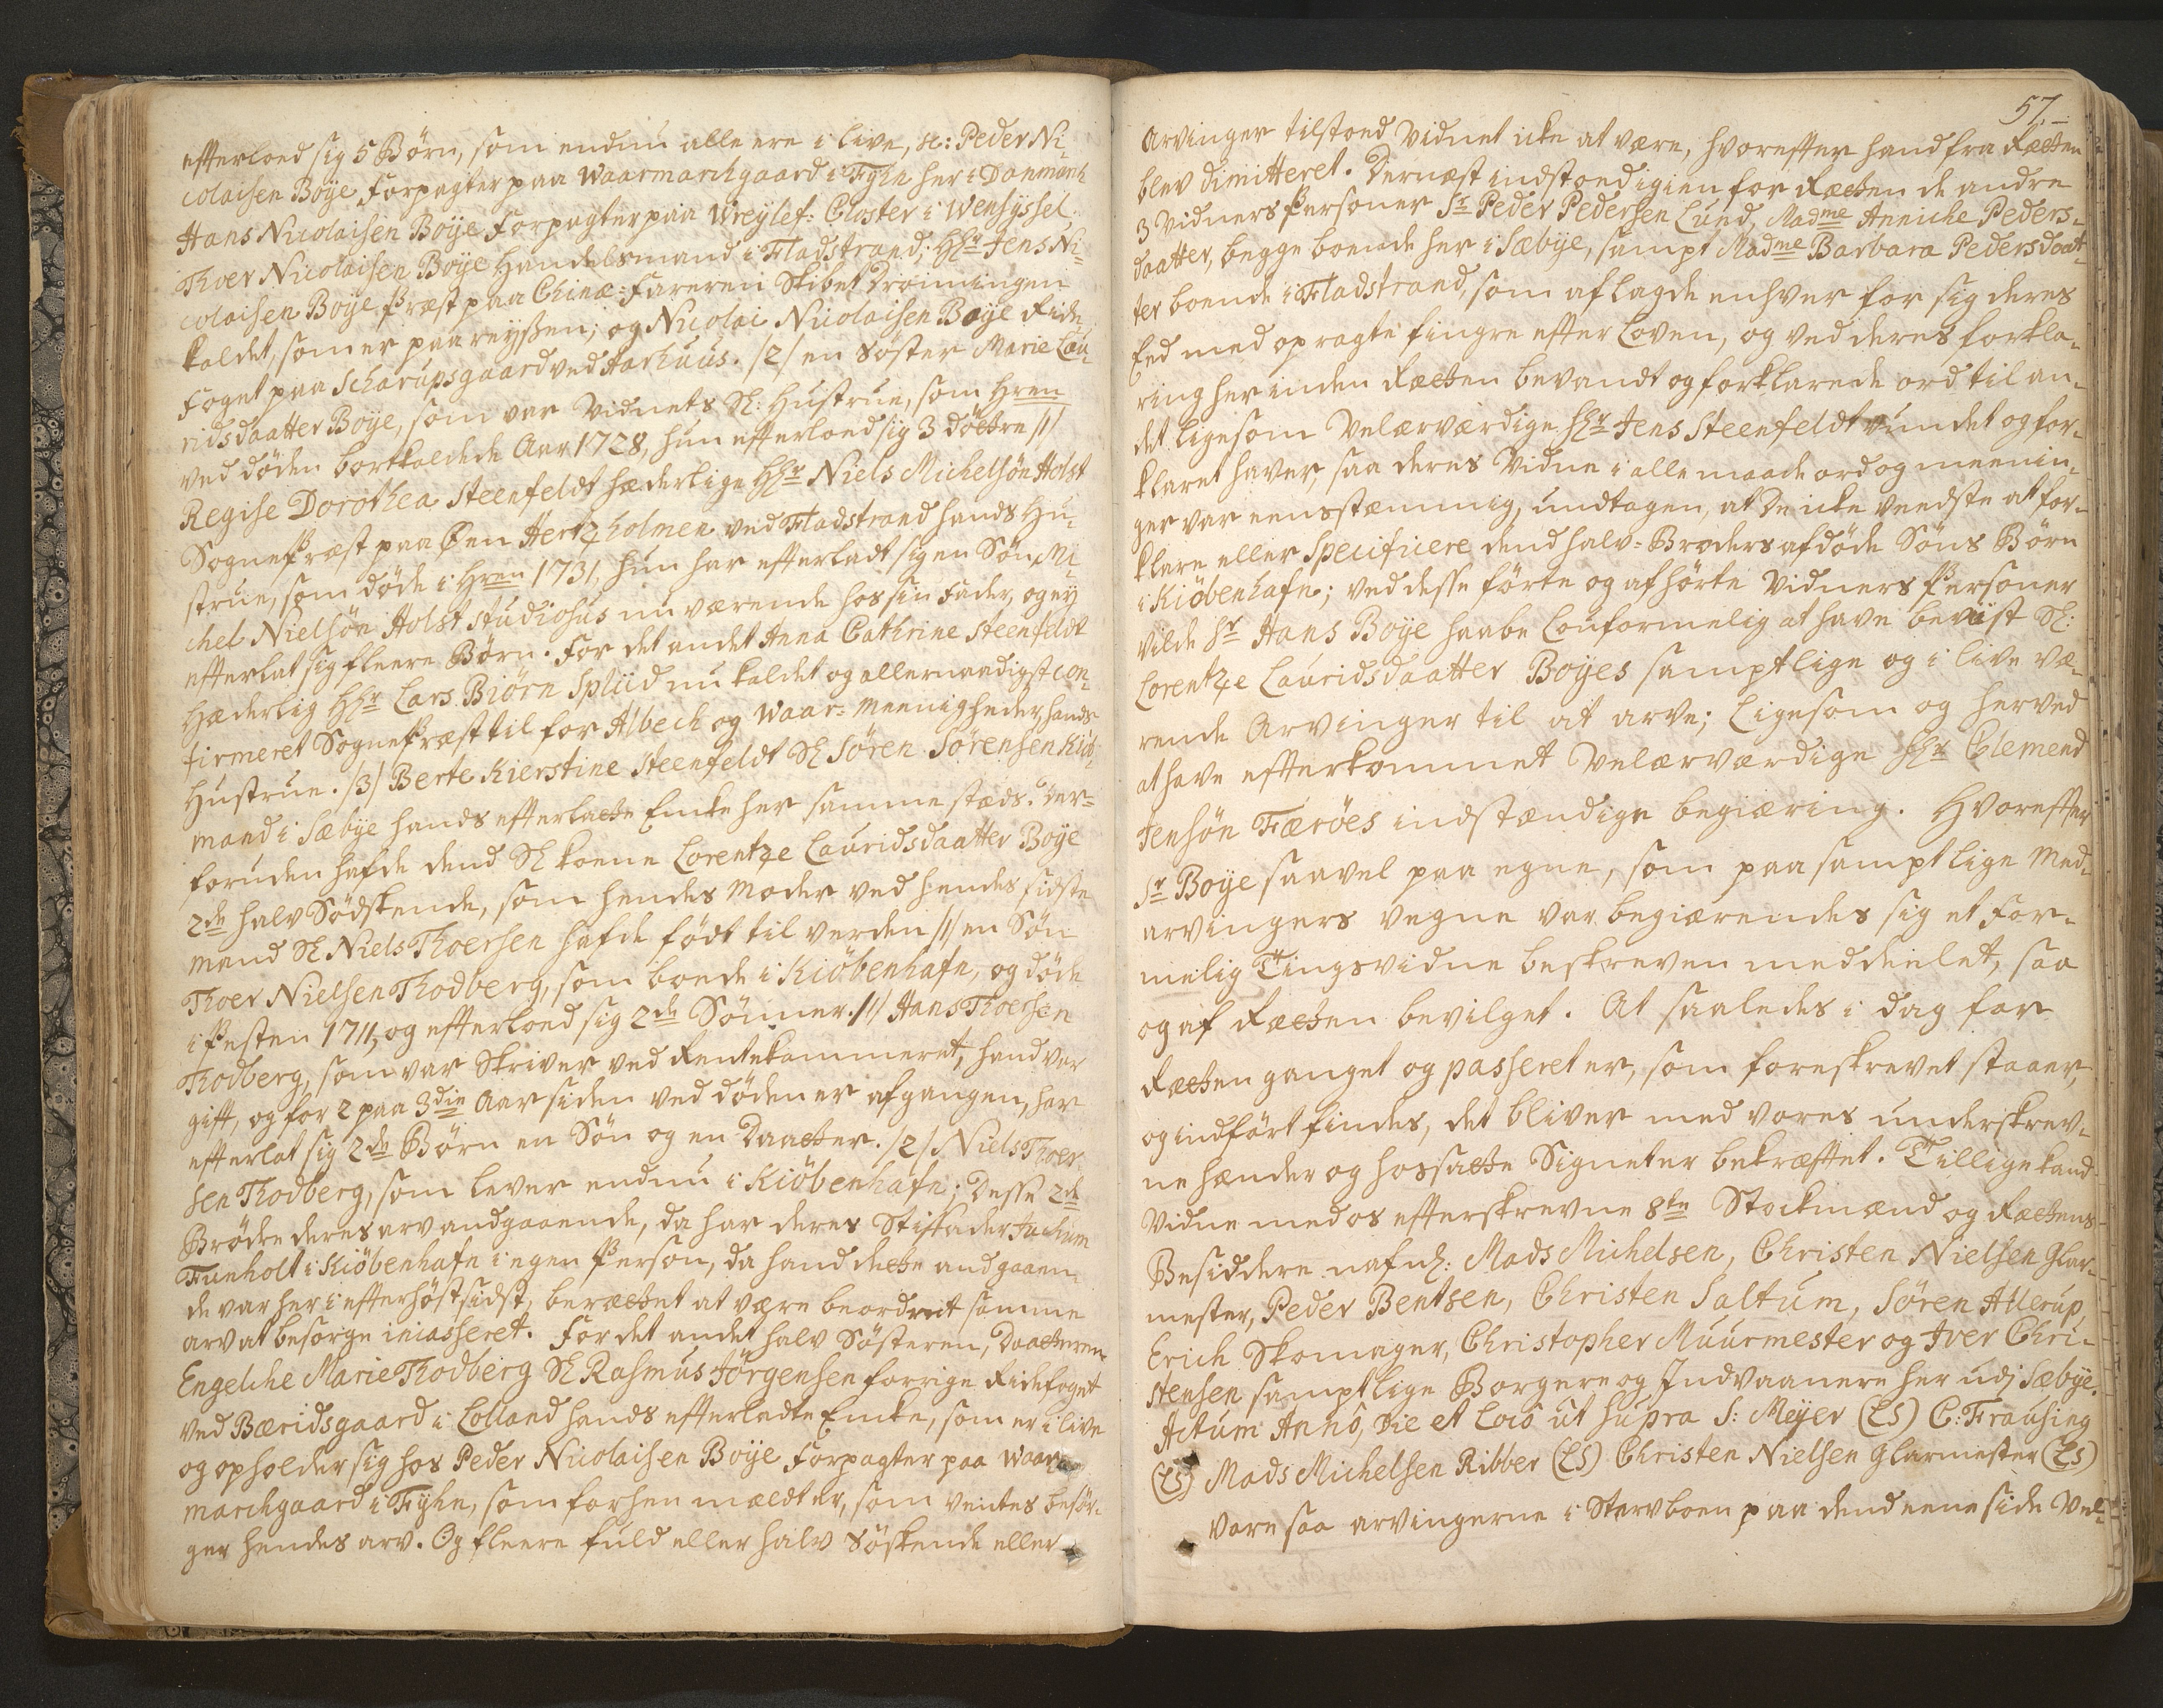 efterloed sig 5 Börn, som endnu alle ere i live, sc: Peder Ni-
colaisen Boÿe Forpagter paa Waarmarckgaard i Fÿhn her i Danmark
Hans Nicolaisen Boÿe Forpagter paa Wreÿlef-Closter i Wensÿssel,
Thoer Nicolaisen Boÿe Handelsmand i Fladstrand; Hr Jens Ni-
colaisen Boÿe Præst paa Chinæ-Fareren Skibet Dronningen
kaldet, som er paa reÿsen; og Nicolai Nicolaisen Boÿe Ride-
Foget paa Scharupsgaard ved Aarhuus. /2/ en Söster Marie Lau-
ridsdaatter Boÿe, som var Vidnets Sl: Hustrue, som Hren
ved döden bortkaldede Aar 1728, hun efterloed sig 3 döttre /1/
Regise Dorothea Steenfeldt hæderlige Hr Niels Michelsön Holst
Sognepræst paa Öen Hertzholmen ved Fladstrand hands Hu-
strue, som döde i Hren 1731, hun har efterladt sig en Sön, Mi-
chel Nielsön Holst Studiosus nu værende hos sin Fader, og eÿ
efterlat sig fleere Börn. For det andet Anna Cathrine Steenfeldt
Hæderlig Hr Lars Biörn Spliid nu kaldet og allernaadigst con-
firmeret Sognepræst til for Albeck og Waar-Meenigheder, hands
Hustrue. /3/ Berte Kierstine Steenfeldt Sl Sören Sörensen Kiöb-
mand i Sæbÿe hands efterlatte Encke her samme steds. Der-
foruden hafde dend Sl kone Lorentze Lauridsdaatter Boÿe
2de halv Södskende, som hendes Moder ved hendes sidste
Mand Sl Niels Thoersen hafde födt til verden /1/ en Sön
Thoer Nielsen Thodberg, som boede i Kiöbenhafn, og döde
i Pesten 1711, og efterloed sig 2de Sönner. /1/ Hans Thoersen
Thodberg, som var Skriver ved Rentekammeret, hand var
gift, og for 2 paa 3die Aar siden ved döden er afgangen, har
efterlat sig 2de Börn en Sön og en Daatter. /2/ Niels Thoer-
sen Thodberg, som lever endnu i Kiöbenhafn; Desse 2de
Brödre deres arv andgaaende, da har deres Stiffader Jochum
Funholt i Kiöbenhafn i egen Person, da hand dette andgaaen-
de var her i efterhöst sidst, berættet at være beordret samme
arv at besorge incasseret. For det andet halv Sösteren, Daatteren
Engelche Marie Thodberg Sl Rasmus Jörgensen forrige Ridefoget
ved Bæridsgaard i Lolland hands efterladte Encke, som er i live
og opholder sig hos Peder Nicolaisen Boÿe Forpagter paa Waar-
marckgaard i Fÿhn, som forhen meldt er, som ventes besör-
ger hendes arv. Og fleere fuld eller halv Söskende eller
57.
Arvinger tilstoed Vidnet icke at være, hvorefter hand fra Rætten
blev dimitteret. Dernæst indstoed igien for Rætten de andre
3 Vidners Personer Sr Peder Pedersen Lund, Madme Anniche Peders-
daatter, begge boende her i Sæbÿe, sampt Madme Barbara Pedersdaat-
ter boende i Fladstrand, som aflagde enhver for sig deres
Eed med opragte fingre efter Loven, og ved deres forkla-
ring her inden Rætten bevandt og forklarede ord til an-
det ligesom Velærværdige Hr Jens Steenfeldt vundet og for-
klaret haver, saa deres Vidne i alle maade ord og meenin-
ger var eensstemmig, undtagen, at De icke veedste at for-
klare eller Specificere dend halv-Broders afdöde Söns Börn
i Kiöbenhafn; ved desse förte og afhörte Vidners Personer
vilde Sr Hans Boÿe haabe Conformelig at have beviist Sl:
Lorentze Lauridsdaatter Boÿes samptlige og i live væ-
rende Arvinger til at arve; Ligesom og herved
at have efterkommet Velærværdige Hr Clemend
Jensön Færöes indstændige begiæring. Hvorefter
Sr Boÿe saavel paa egne, som paa samptlige Med-
arvingers vegne var begiærendes sig et For-
melig Tingsvidne beskreven meddeelet, saa
og af Rætten bevilget. At saaledes i dag for
Rætten ganget og passeret er, som foreskrevet staaer,
og indfört findes, det bliver med vores underskrev-
ne hænder og hossatte Signeter bekræftet. Tillige kand
Vidne med os efterskrevne 8te Stockmænd og Rættens
Besiddere nafnl: Mads Michelsen, Christen Nielsen Glar-
mester, Peder Bentsen, Christen Saltum, Sören Allerup,
Erich Skomager, Christopher Muurmester og Iver Chri-
stensen samptlige Borgere og Indvaanere her udj Sæbÿe.
Actum Anno, Die et Loco ut supra S: Meÿer (LS) C: Frausing
(LS) Mads Michelsen Ribber (LS) Christen Nielsen Glarmester (LS)
Vare saa arvingerne i Stervboen paa dend eene side Vel-